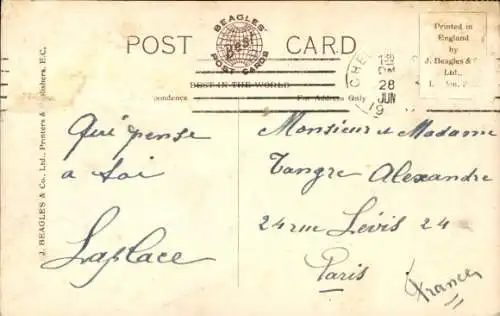 POST CARD
BEAGLES'
Best
POST CARDS
BEST IN THE WORLD
Printed in
England
by
J. Beagles &
Ltd.,
For Address Only
CHE
1 30 PM
28
JUN
19
J. BEAGLES & Co., Ltd., Printers & Publishers, E.C.
Qui pense
a toi
Laplace
Monsieur et Madame
Tangre Alexandre
24 rue Lévis 24
Paris
France